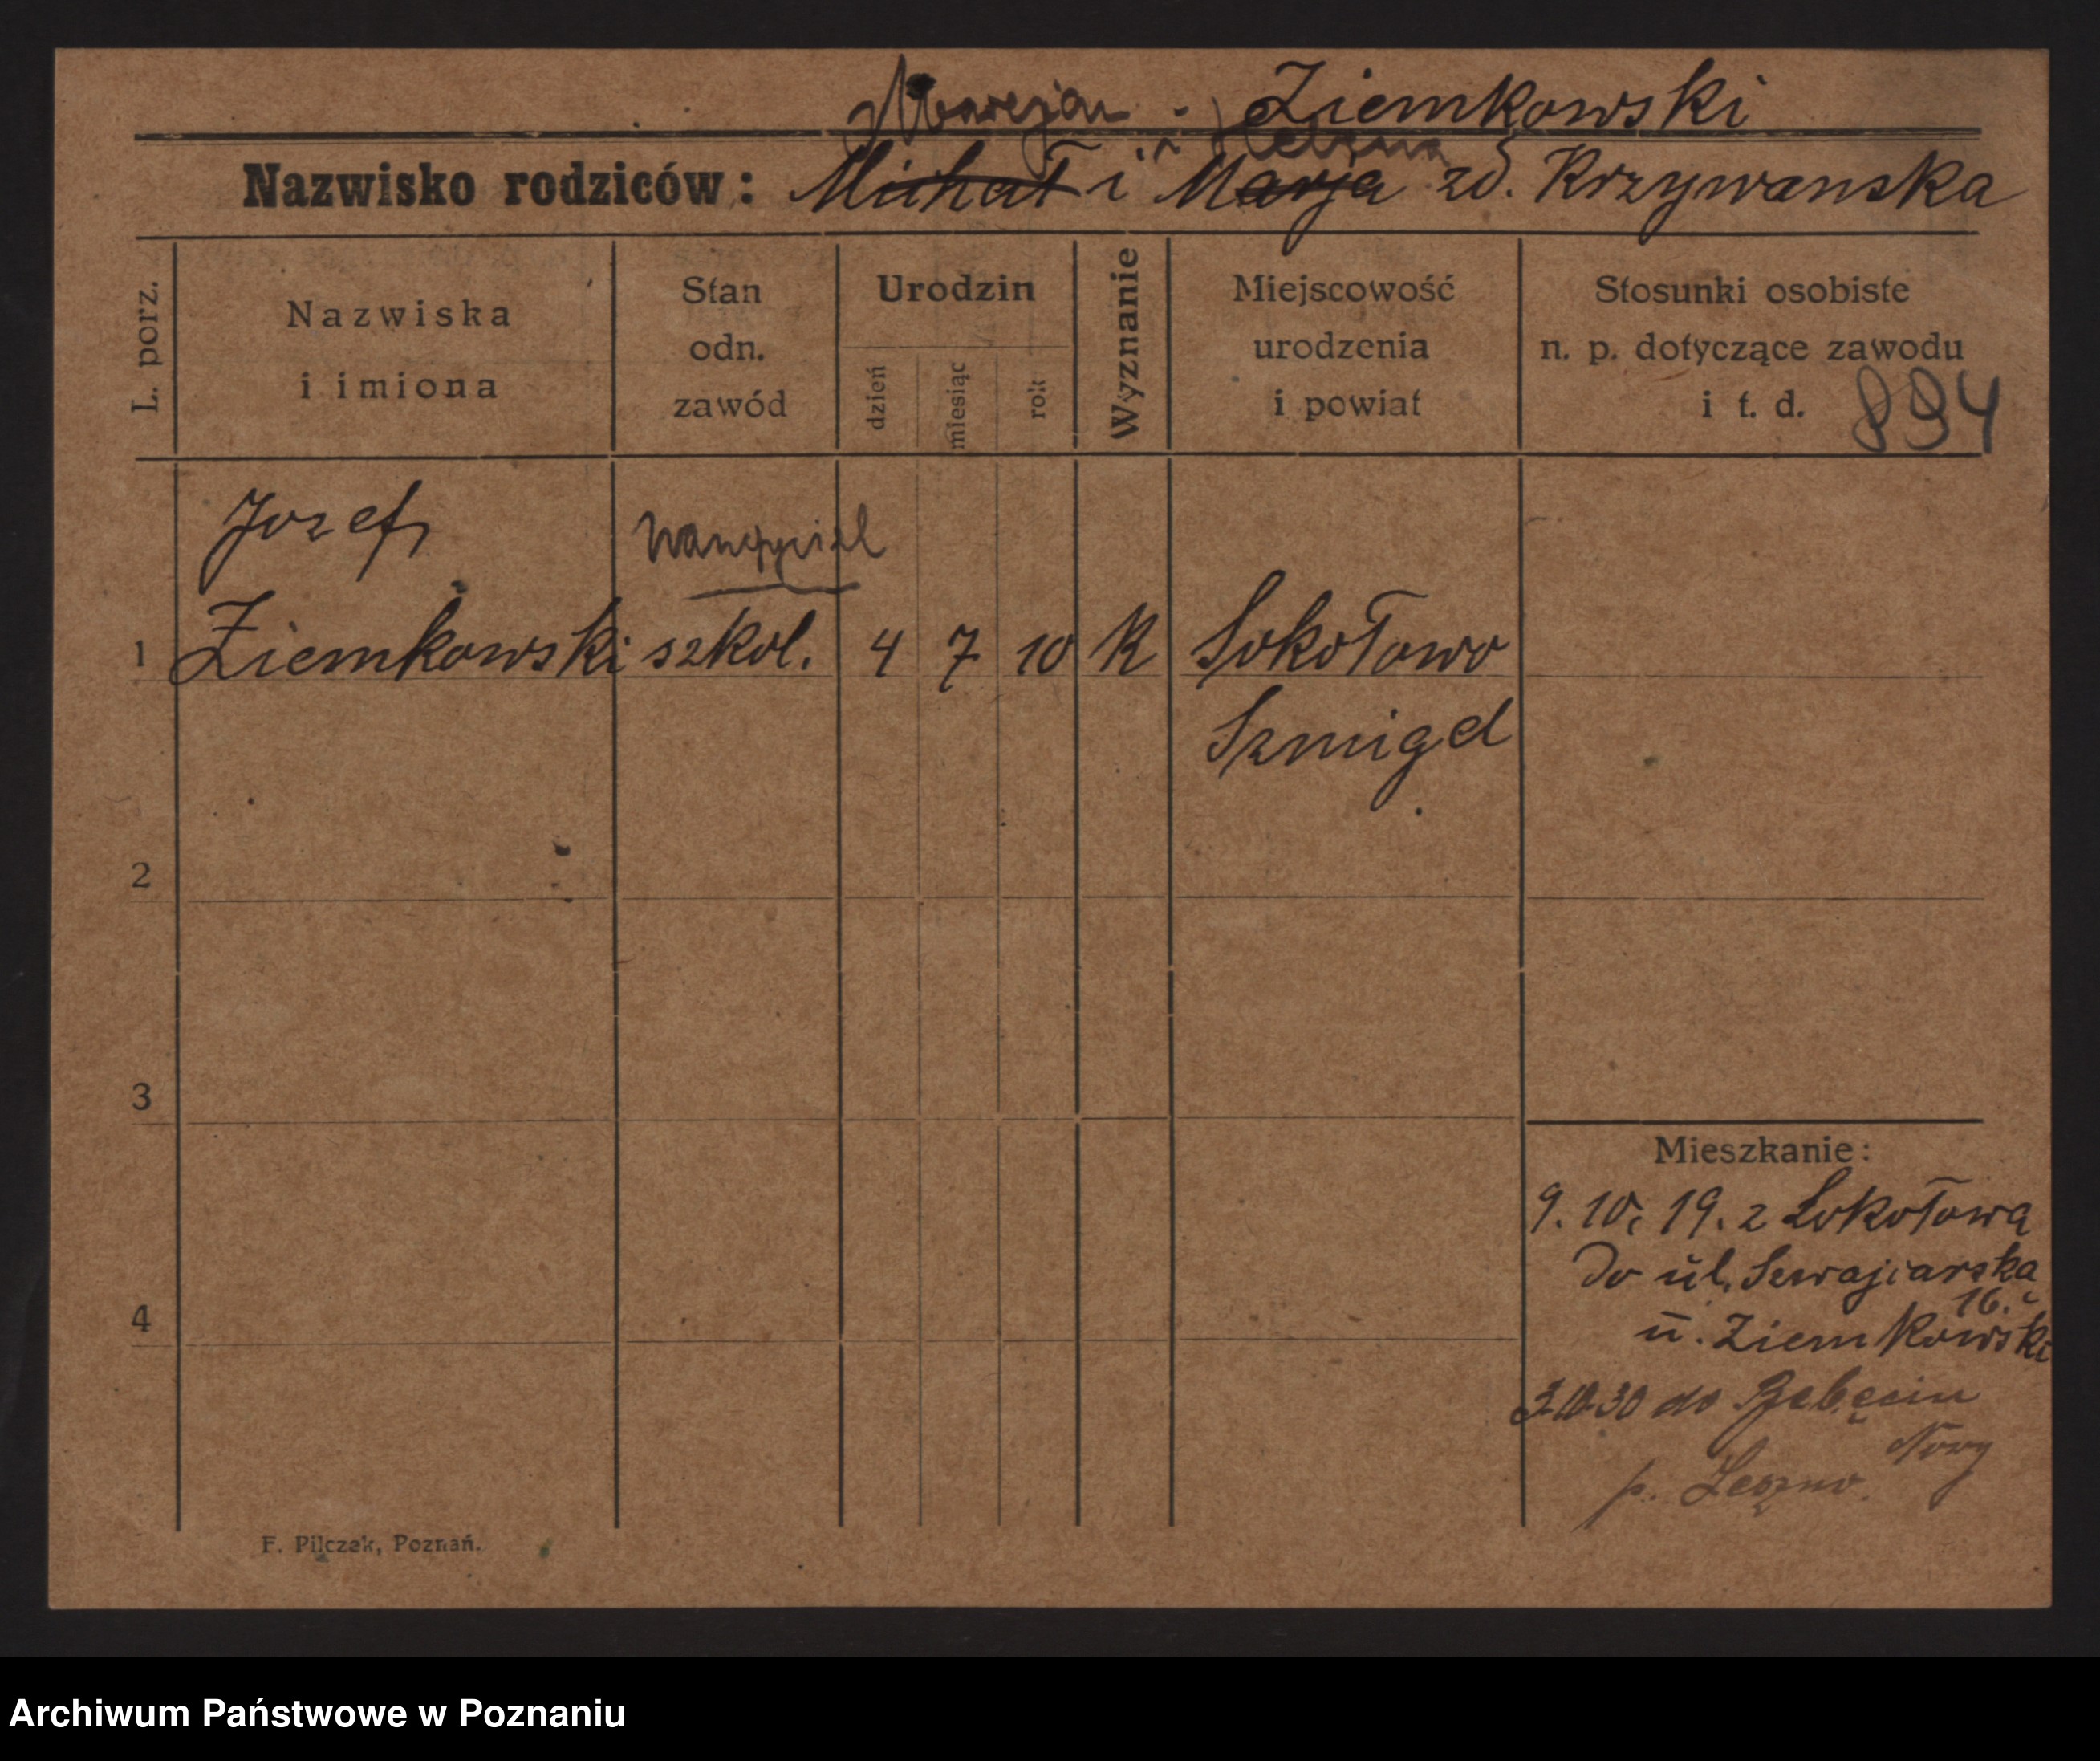 Maryjan - Ziemkowski
i Helena
Nazwisko rodziców: Michał i Marja zd. Krzywanska
L. porz.
Nazwiska
i imiona
Stan
odn.
zawód
Urodzin
dzień
miesiąc
rok
Wyznanie
Miejscowość
urodzenia
i powiat
Stosunki osobiste
n. p. dotyczące zawodu
i t. d. 894
Jozef
nauczyciel
1 Ziemkowski szkol. 4 7 10 K Sokołowo
Szmigel
2
3
4
Mieszkanie:
9. 10. 19. z Sokołowa
do ul. Szwajcarska
16.
u. Ziemkowski
10 30 do
Nowy
p. Leszno.
F. Pilczek, Poznań.
Archiwum Państwowe w Poznaniu